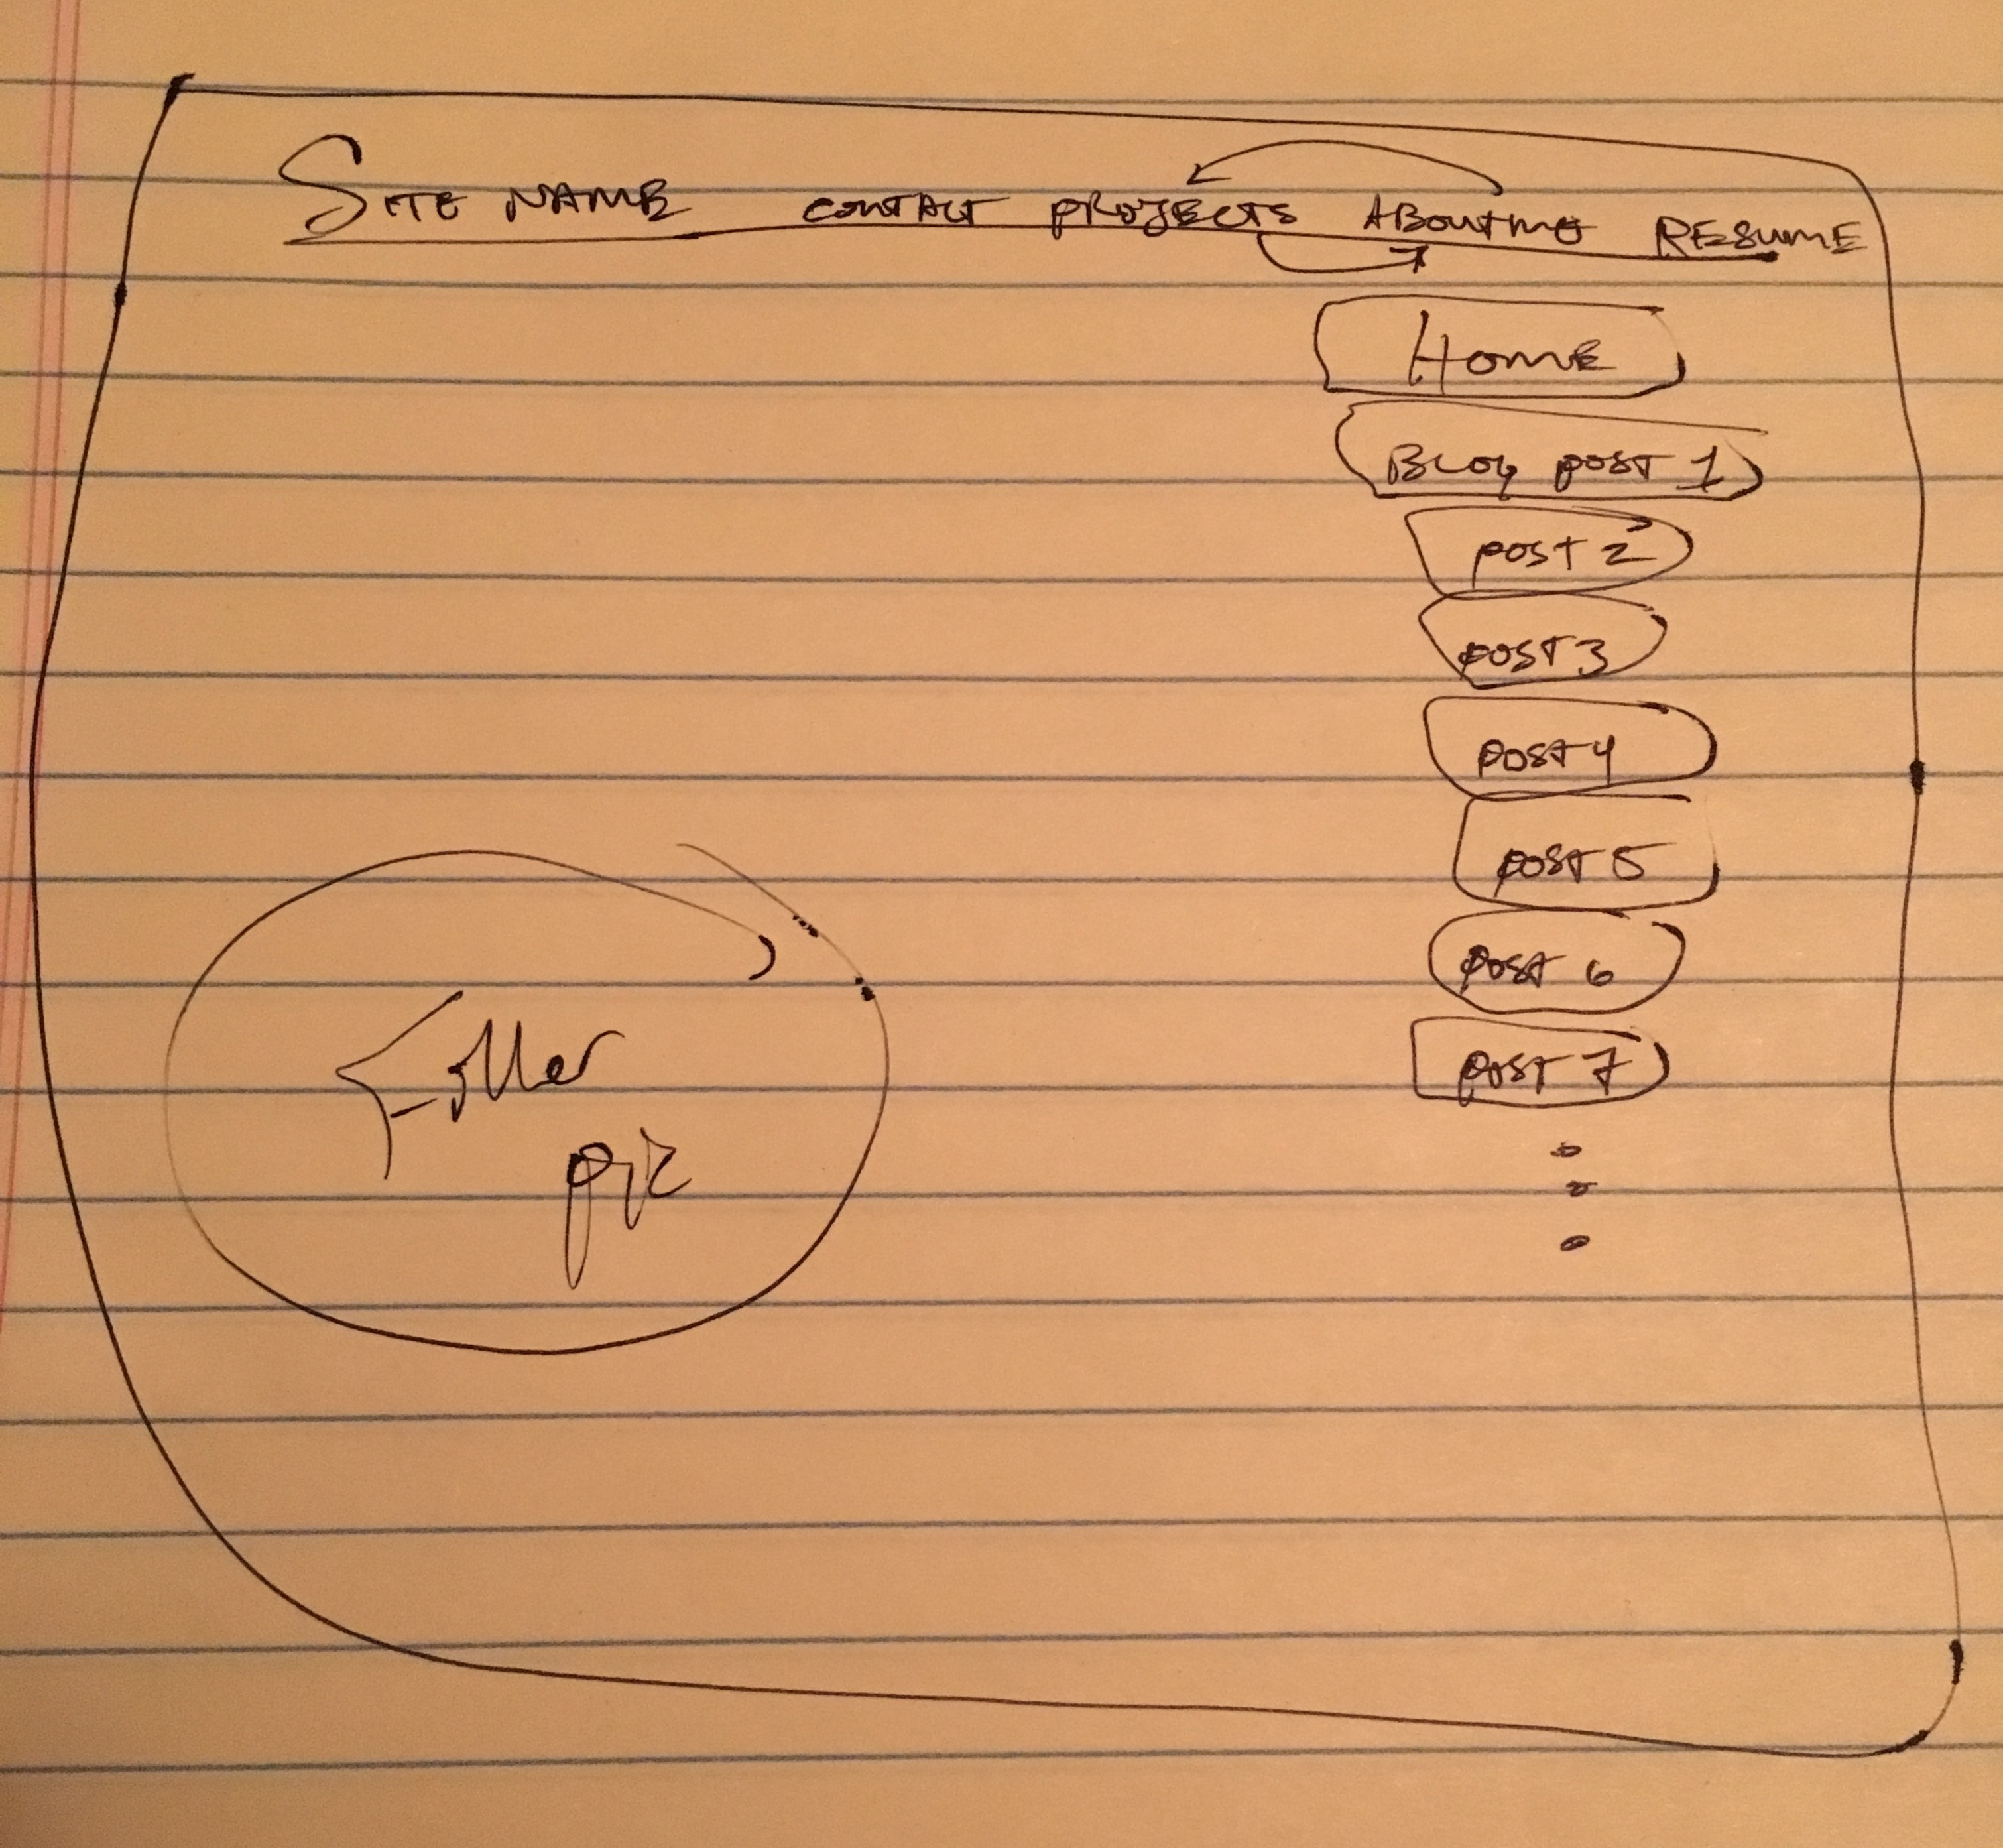 SITE NAME CONTACT PROJECTS ABOUT ME RESUME
HOME
BLOG POST 1
POST 2
POST 3
POST 4
POST 5
POST 6
POST 7
Filler
pic